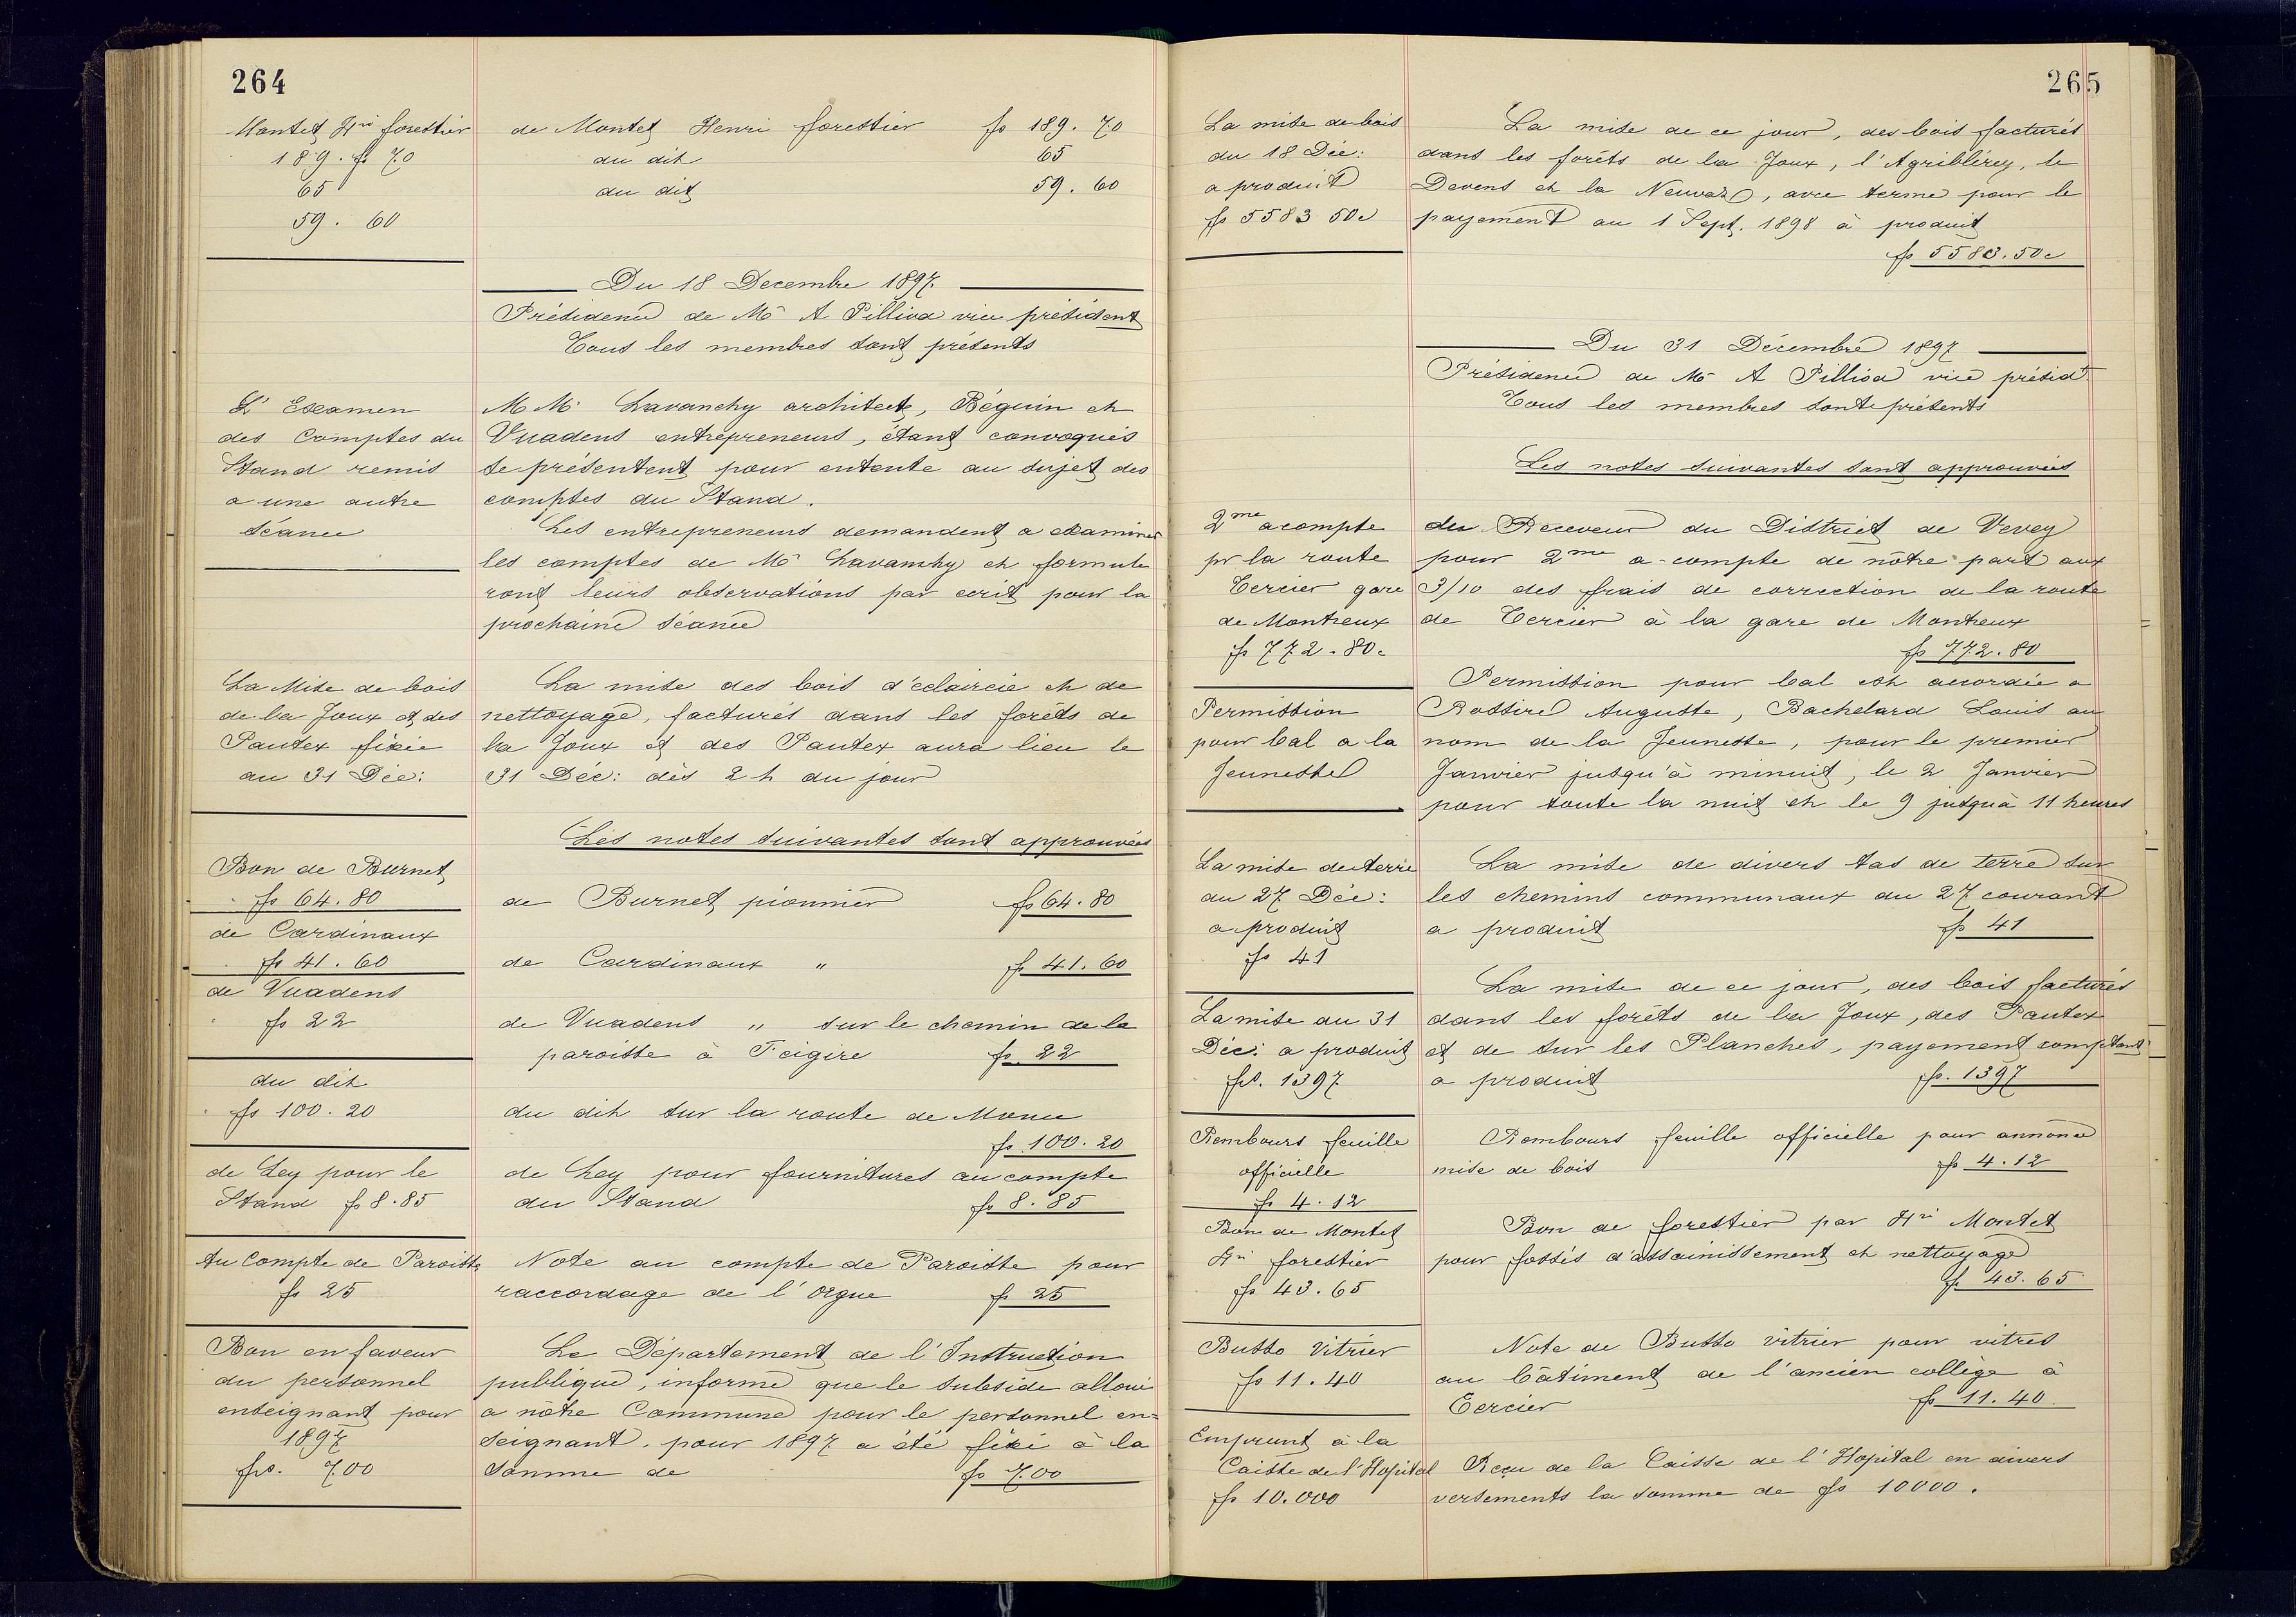 264
Montet Hri forestier
189. fs 70
65
59. 60
de Montet Henri forestier fs 189. 70
du dit 65
du dit 59. 60
Du 18 Decembre 1897.
Présidence de Mr A Pilliod vice président
Tous les membres sont présents
L'Examen
des Comptes du
Stand remis
a une autre
séance
M M. Lavanchy architecte, Béguin et
Vuadens entrepreneurs, étant convoqués
se présentent pour entente au sujet des
comptes du Stand.
Les entrepreneurs demandent a examiner
les comptes de Mr Lavanchy et formule
ront leurs observations par ecrit pour la
prochaine séance
La Mise de bois
de la Joux et des
Pautex fixée
au 31 Déc:
La mise des bois d'éclaircie et de
nettoyage, facturés dans les forêts de
la Joux et des Pautex aura lieu le
31 Déc: dès 2 h du jour
Les notes suivantes sont approuvées
Bon de Burnet
fs 64. 80
de Burnet pionnier fs 64. 80
de Cardinaux
fs 41. 60
de Cardinaux " fs 41. 60
de Vuadens
fs 22
de Vuadens " sur le chemin de la
paroisse à Feigire fs 22
du dit
fs 100. 20
du dit sur la route de Moruu
fs 100. 20
de Ley pour le
Stand fs 8. 85
de Ley pour fournitures au compte
du Stand fs 8. 85
Au Compte de Paroisse
fs 25
Note au compte de Paroisse pour
raccordage de l'orgue fs 25
Bon en faveur
du personnel
enseignant pour
1897
frs. 700
Le Département de l'Instruction
publique, informe que le subside alloué
a nôtre Commune pour le personnel en=
seignant. pour 1897 a été fixé à la
somme de fs 700
265
La mise de bois
du 18 Déc:
a produit
fs 5583 50c
La mise de ce jour, des bois facturés
dans les forêts de la Joux, l'Agriblérey, le
Devens et la Neuvaz, avec terme pour le
payement au 1 Sept. 1898 à produit
fs 5583. 50c
Du 31 Décembre 1897
Présidence de Mr A Pilliod vice présidt.
Tous les membres sont présents
Les notes suivantes sont approuvées
2me acompte
pr la route
Tercier gare
de Montreux
fs 772. 80.
du Receveur du District de Vevey
pour 2me a-compte de nôtre part aux
3/10 des frais de correction de la route
de Tercier à la gare de Montreux
fs 772. 80
Permission
pour bal a la
Jeunesse
Permission pour bal est accordée a
Rossire Auguste, Bachelard Louis au
nom de la Jeunesse, pour le premier
Janvier jusqu'à minuit, le 2 Janvier
pour toute la nuit et le 9 jusquà 11 heures
La mise de terre
du 27 Déc:
a produit
fs 41
La mise de divers tas de terre sur
les chemins communaux du 27 courant
a produit fs 41
La mise du 31
Déc: a produit
fs. 1397
La mise de ce jour, des bois facturés
dans les forêts de la Joux, des Pautex
et de sur les Planches, payement comptant
a produit fs. 1397
Rembours feuille
officielle
fs 4. 12
Rembours feuille officielle pour annonce
mise de bois fs 4. 12
Bon de Montet
Hri forestier
fs 43. 65
Bon de forestier par Hri Montet
pour fossés d'assainissement et nettoyage
fs 43. 65
Busso Vitrier
fs 11. 40
Note de Busso vitrier pour vitres
au bâtiment de l'ancien collège à
Tercier fs 11. 40.
Emprunt à la
Caisse de l'Hopital
fs 10.000
Reçu de la Caisse de l'Hopital en divers
versements la somme de fs 10000.